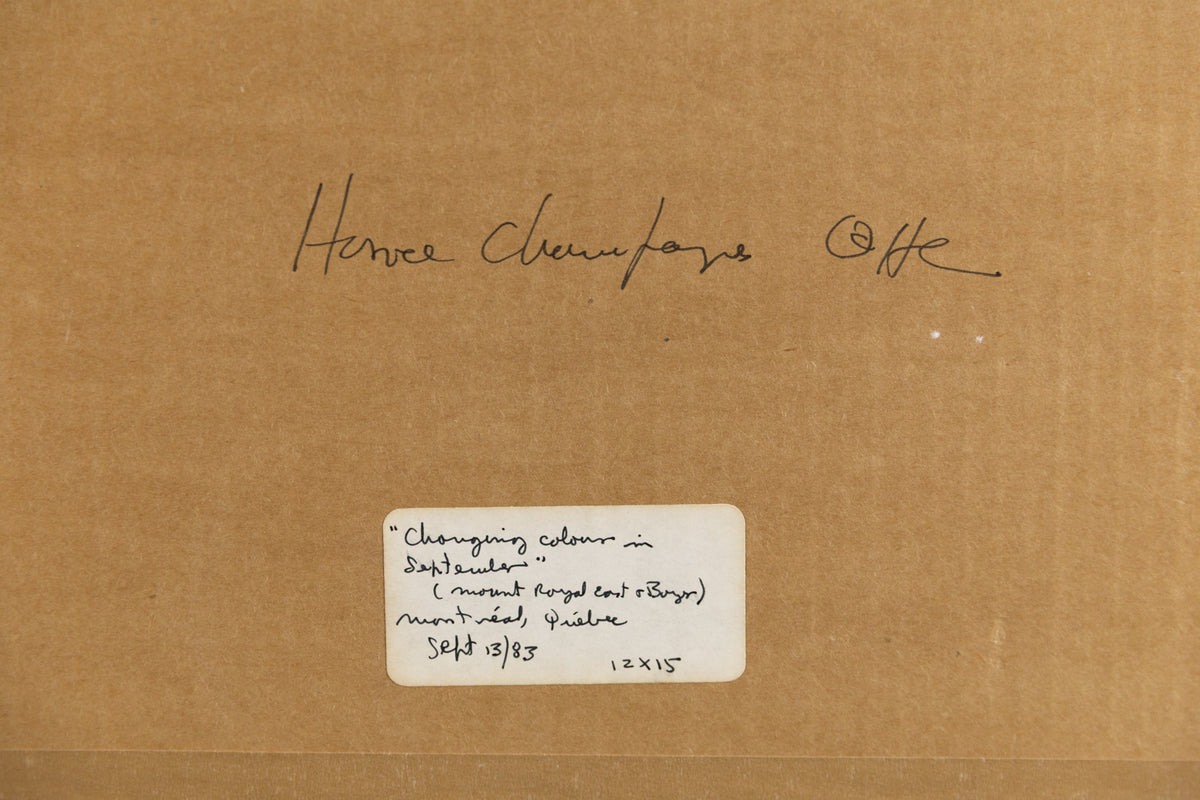 Horace Champagne
"Changing colours in
September"
(Mount Royal East &
Montréal, Québec
Sept 13/83
12x15